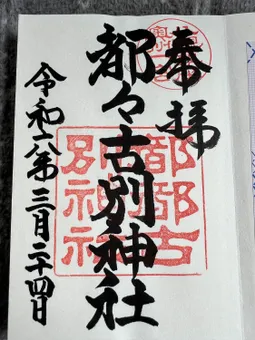 奉拝
都々古別神社
令和六年三月二十四日
都都古
別神社